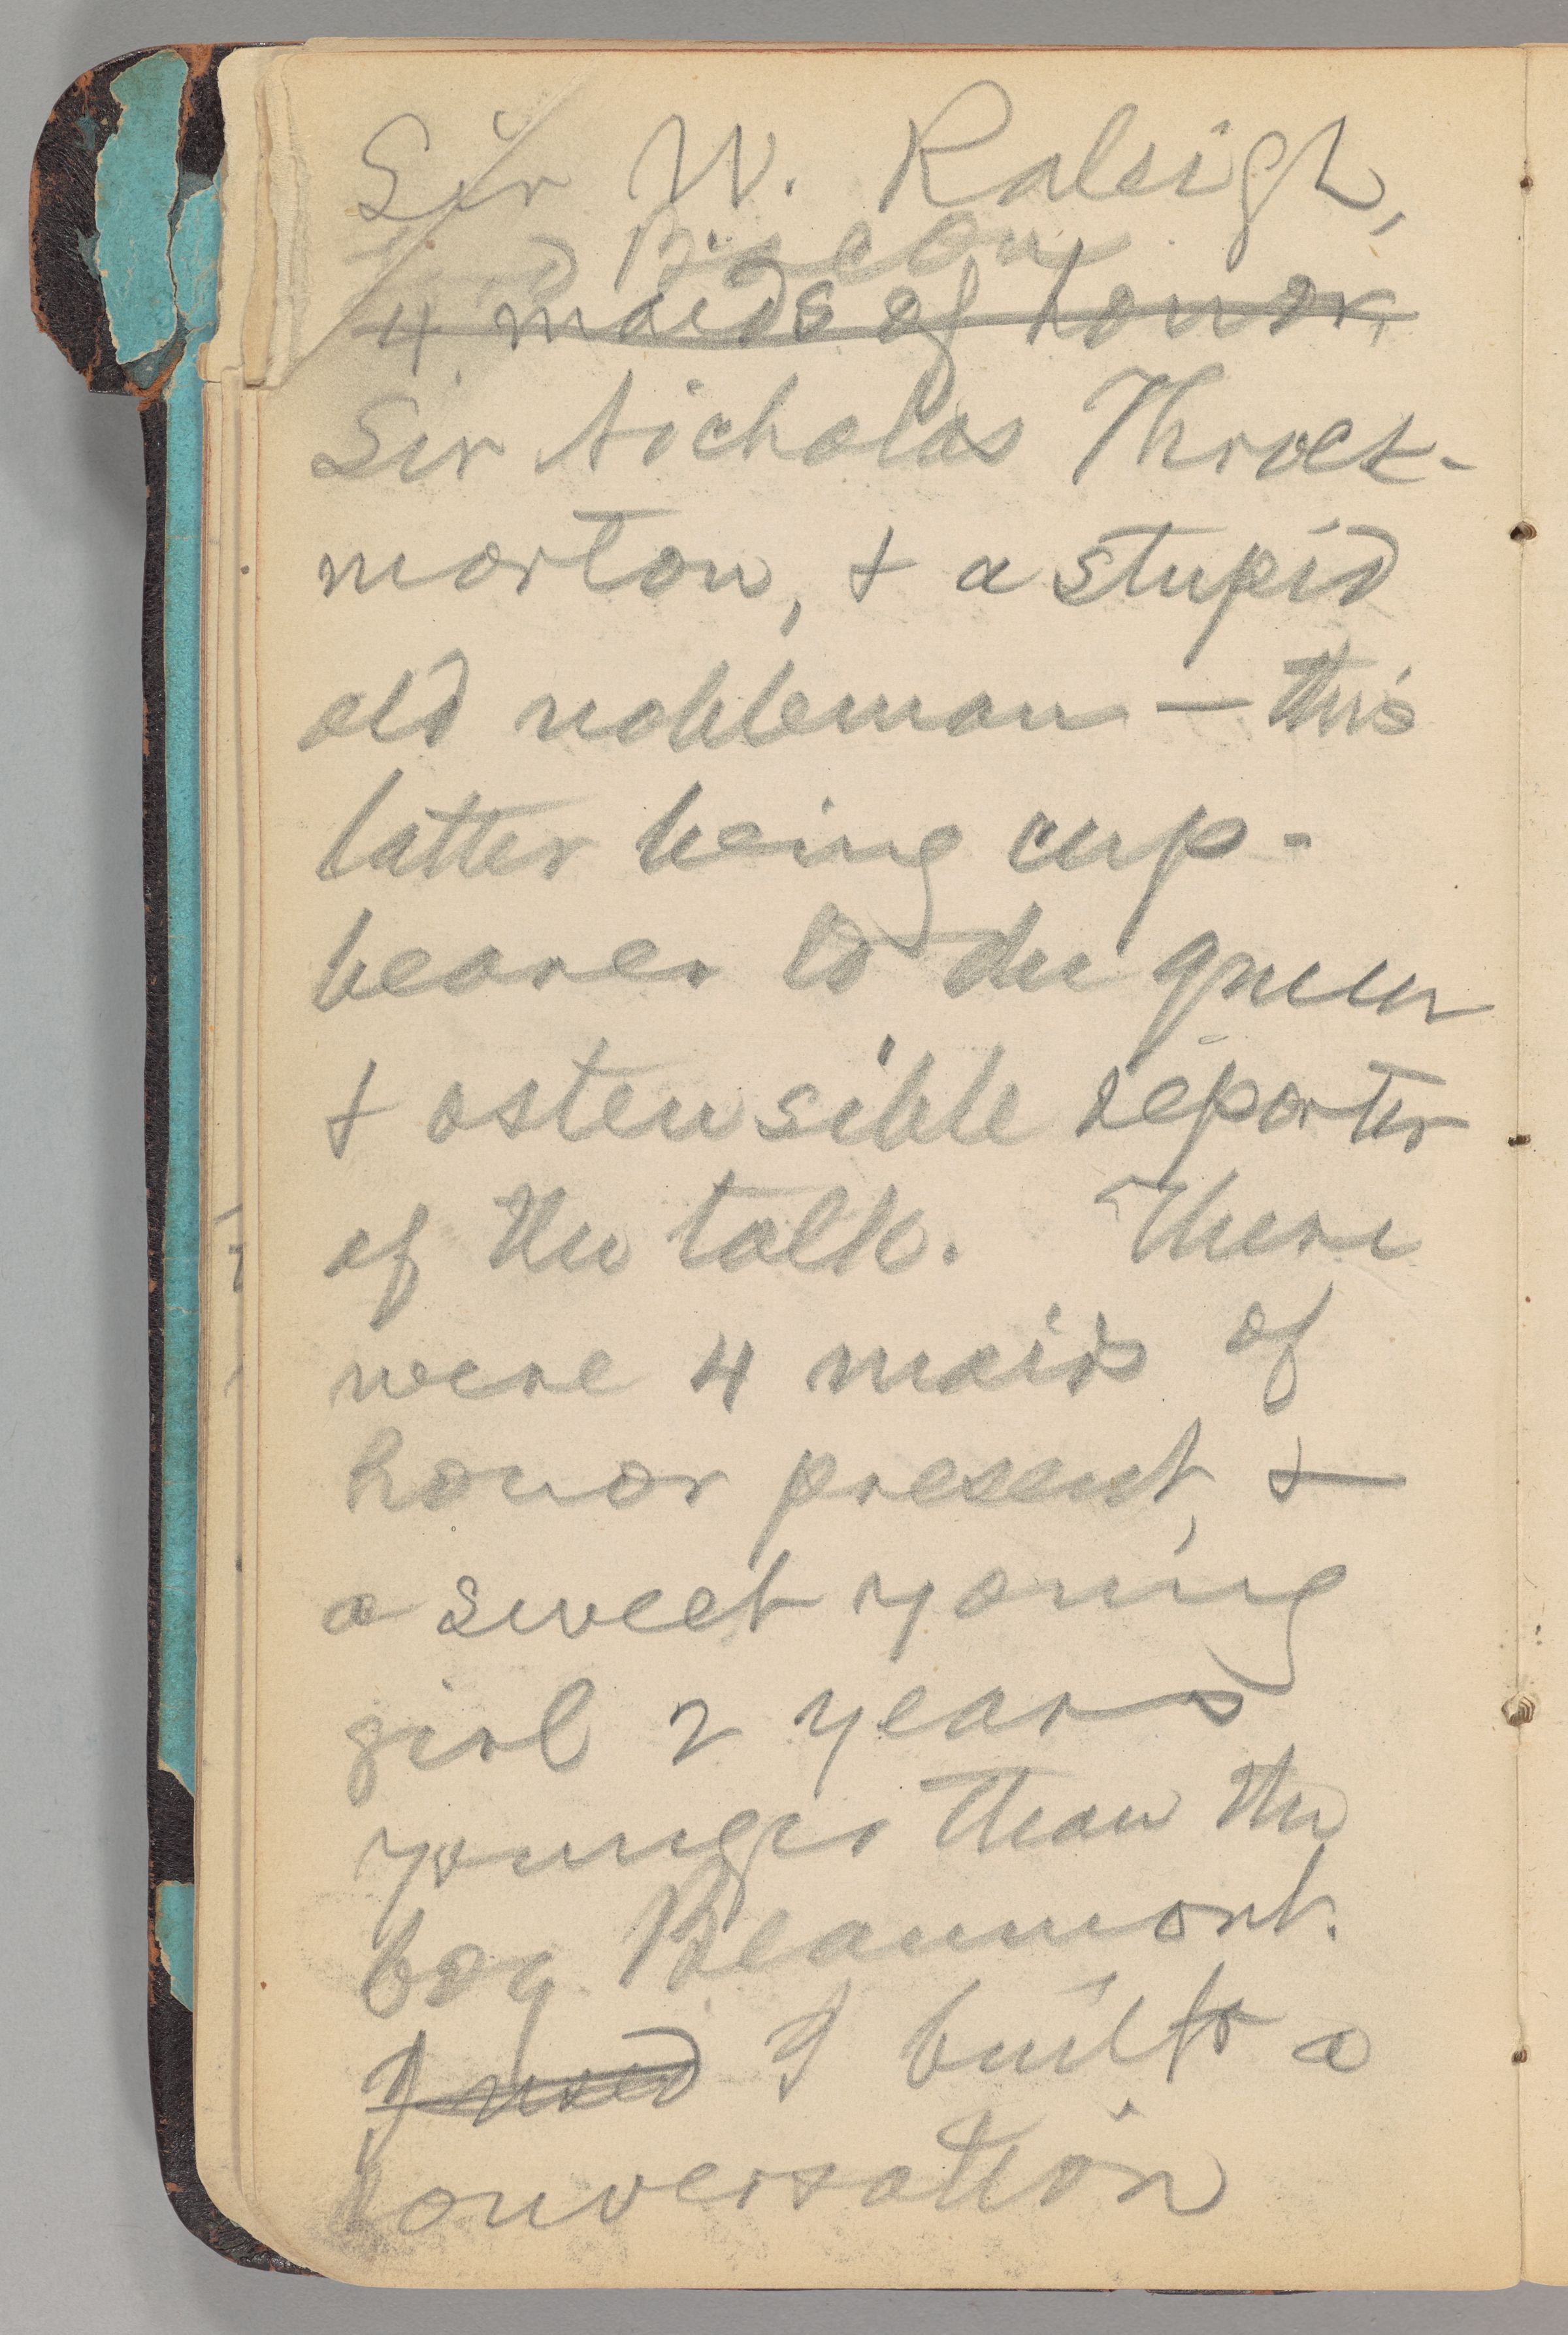 Sir W. Raleigh,
Lord Bacon,
4 maids of honor,
Sir Nicholas Throck-
morton, & a stupid
old nobleman — this
latter being cup-
bearer to the queen
& ostensible reporter
of the talk. There
were 4 maids of
honor present, &
a sweet young
girl 2 years
younger than the
boy Beaumont.
I used I built a
conversation